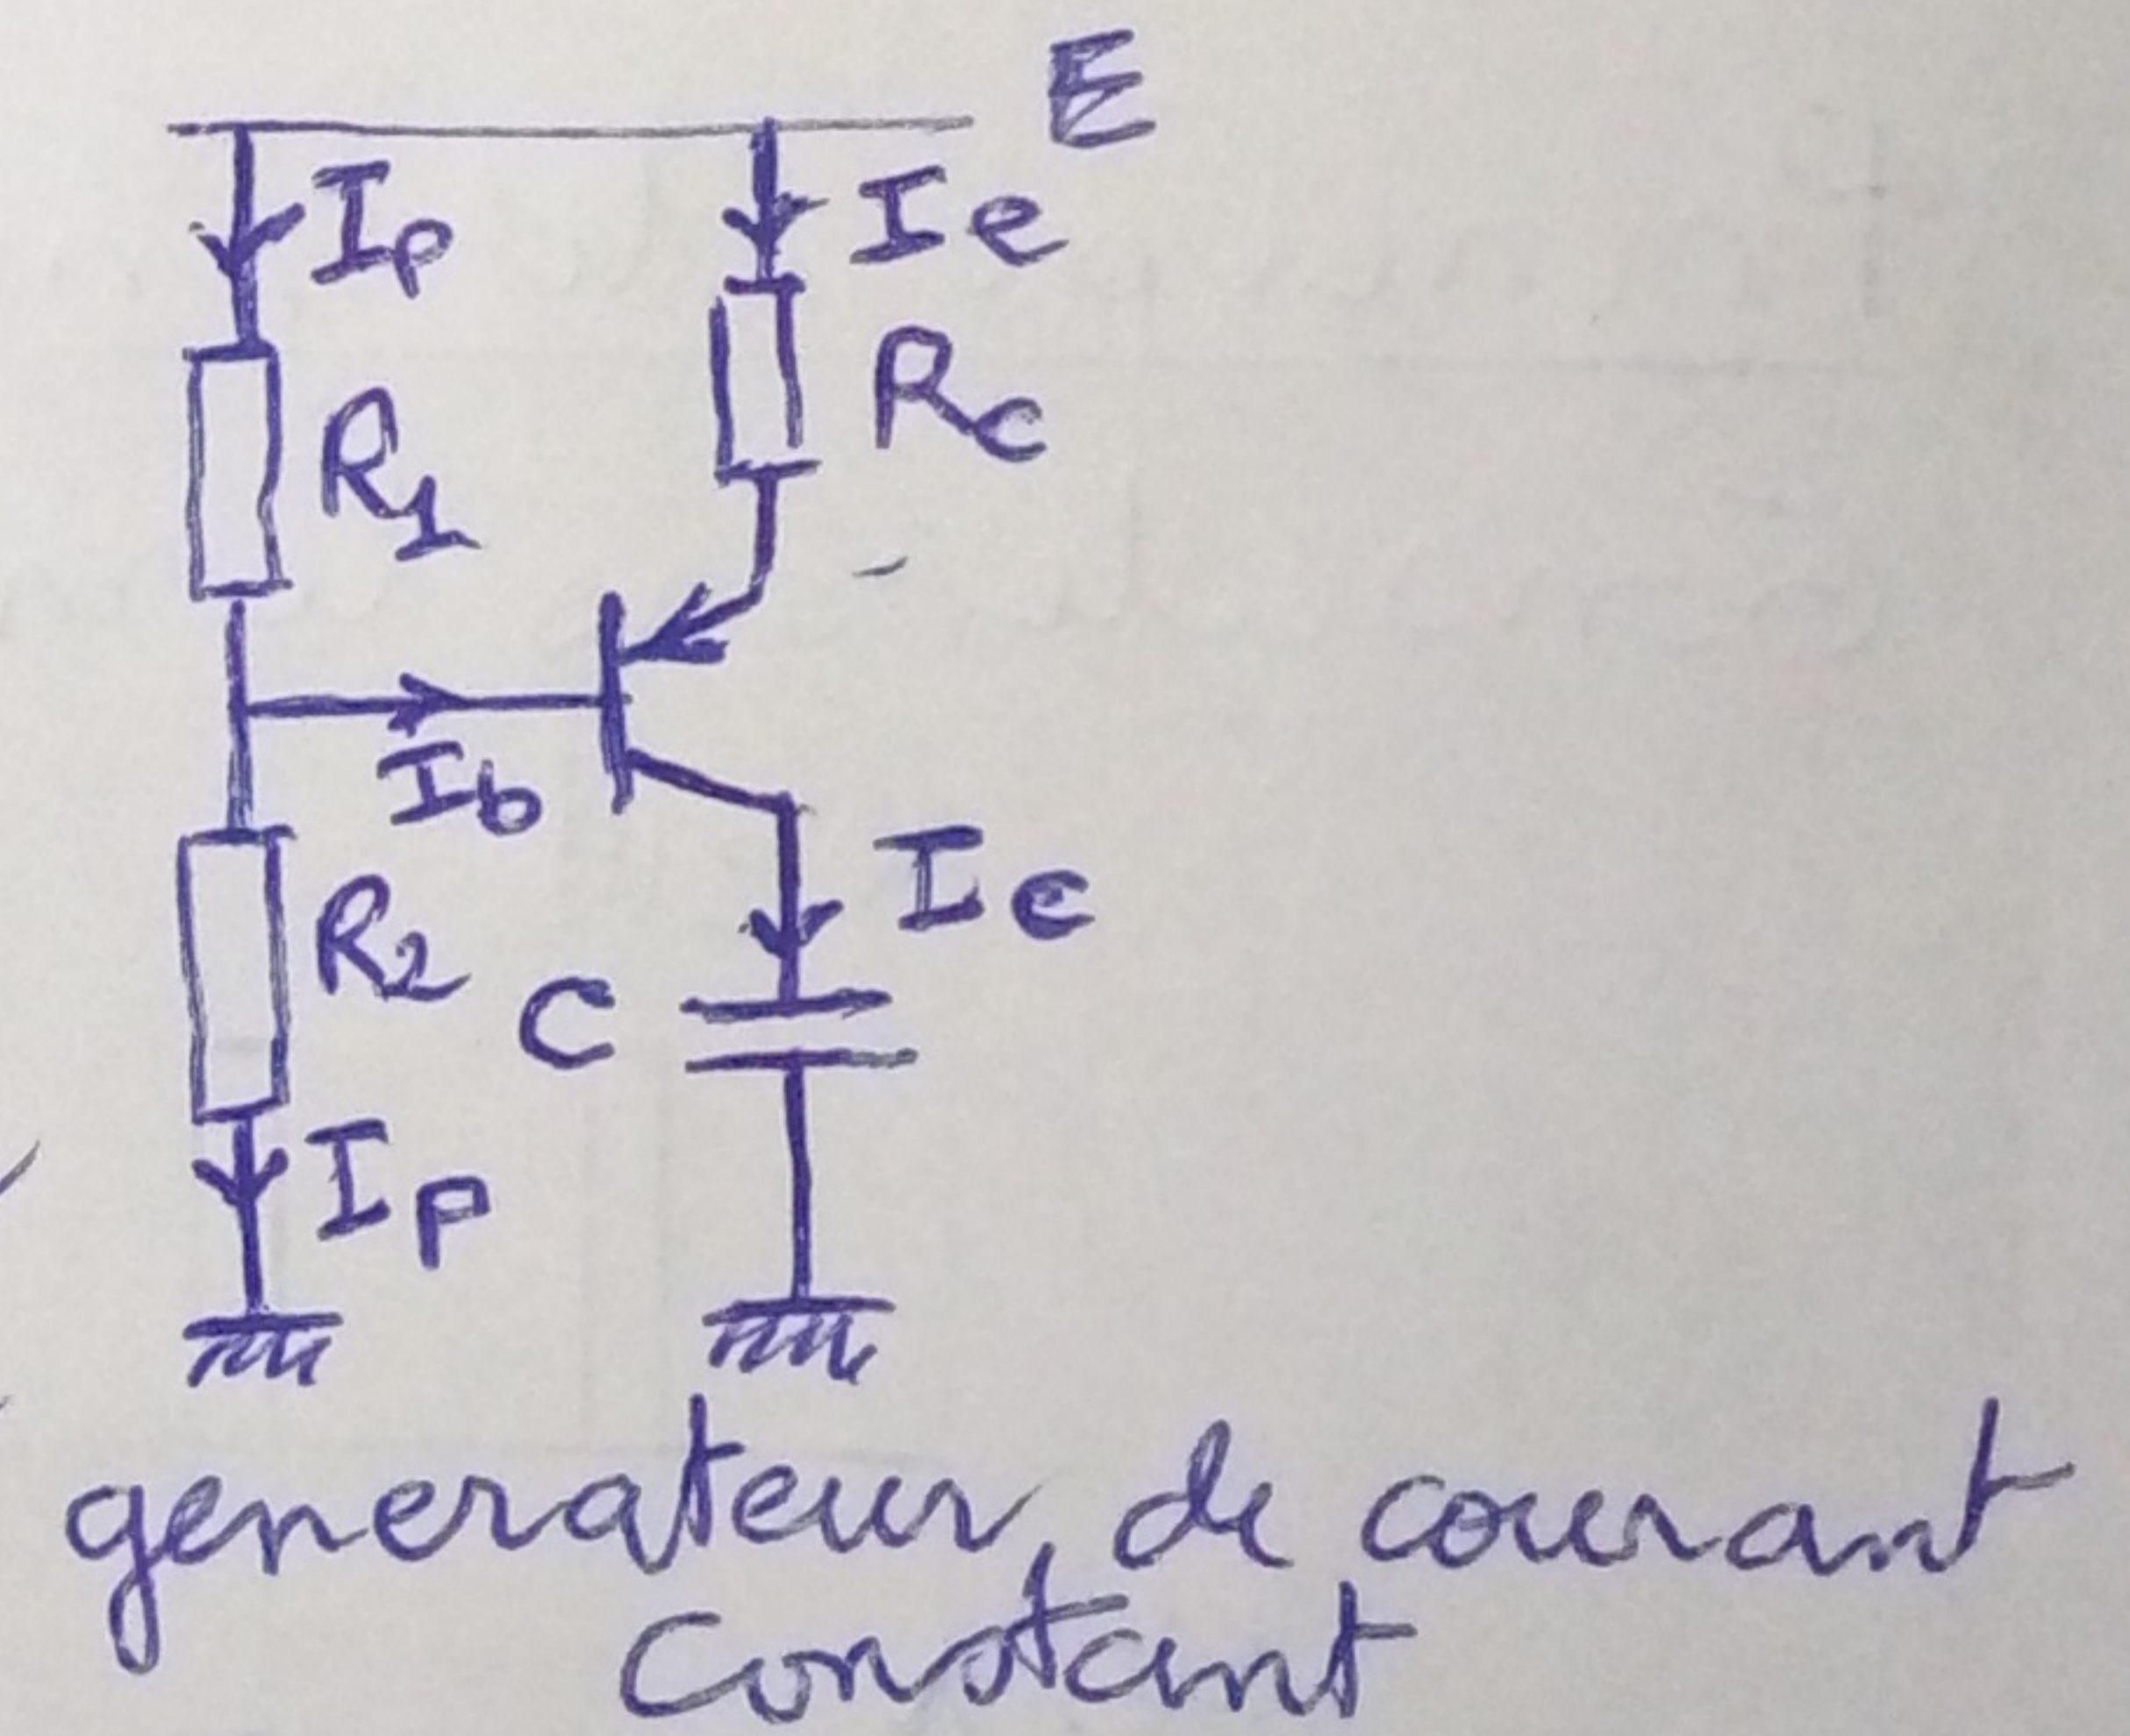 E
Ip
Ie
R1
Rc
Ib
R2
Ic
C
Ip
generateur de courant
Constant